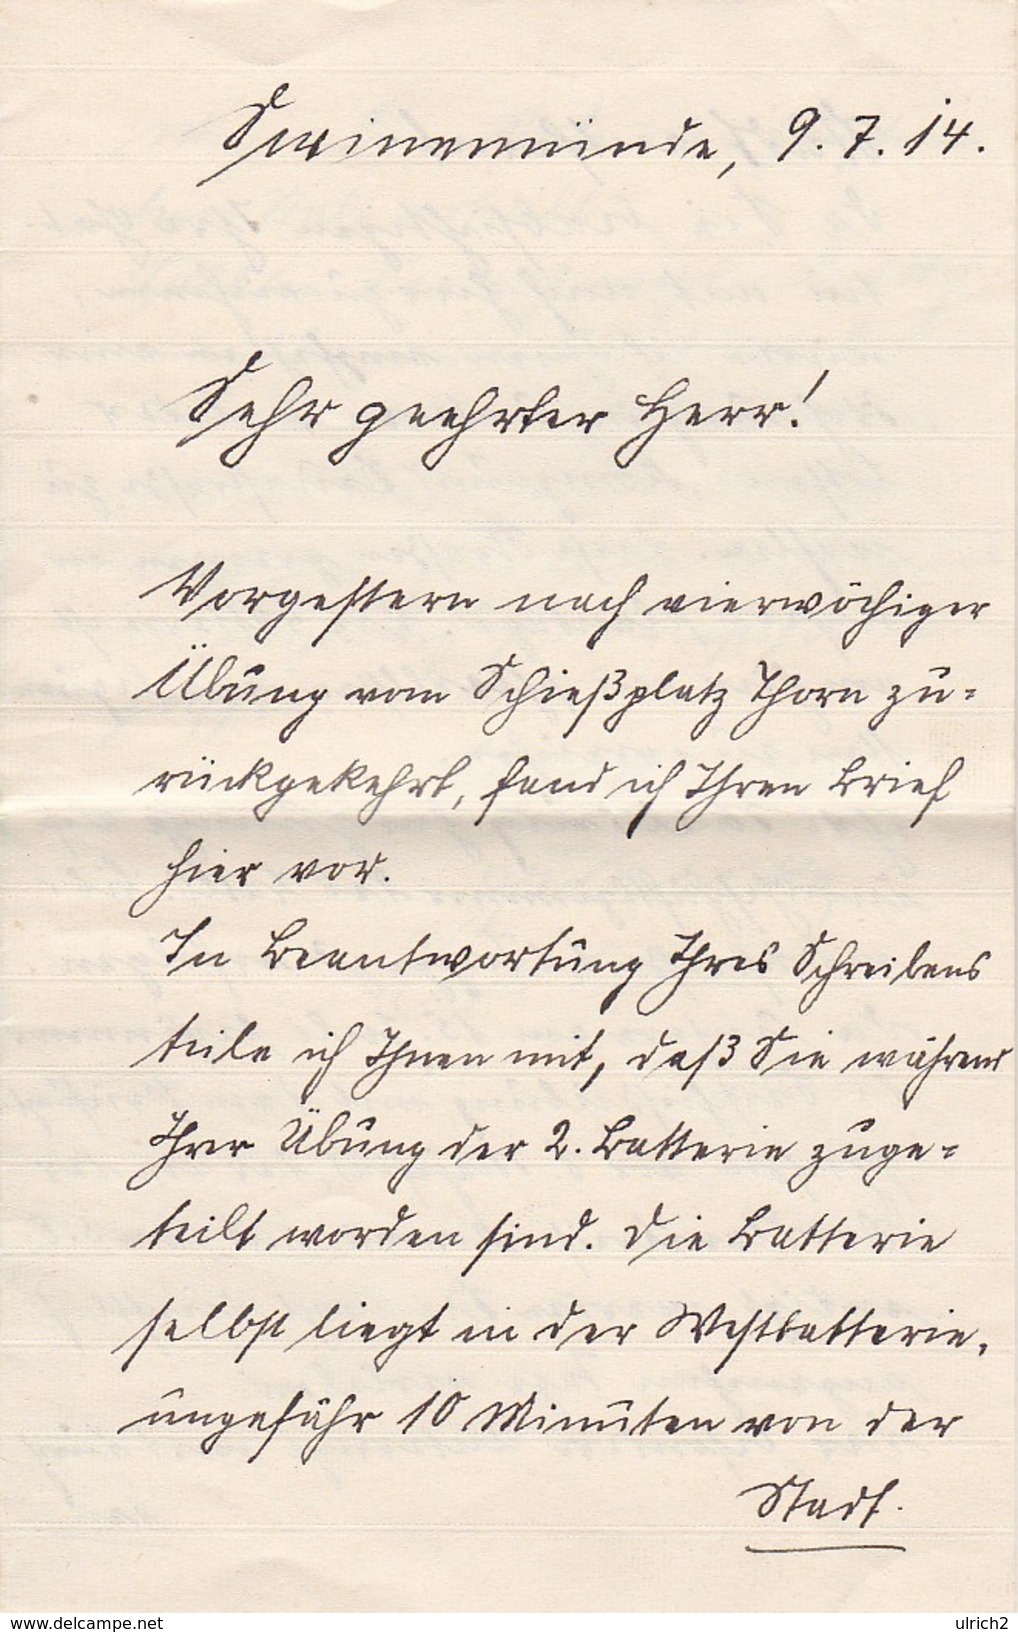 Swinemünde, 9. 7. 14.
Sehr geehrter Herr!
Vorgestern nach vierwöchiger
Übung vom Schießplatz Thorn zu=
rückgekehrt, fand ich Ihren Brief
hier vor.
In Beantwortung Ihres Schreibens
teile ich Ihnen mit, daß Sie während
Ihrer Übung der 2. Batterie zuge=
teilt worden sind. Die Batterie
selbst liegt in der Westbatterie,
ungefähr 10 Minuten von der
Stadt.
www.delcampe.net
ulrich2